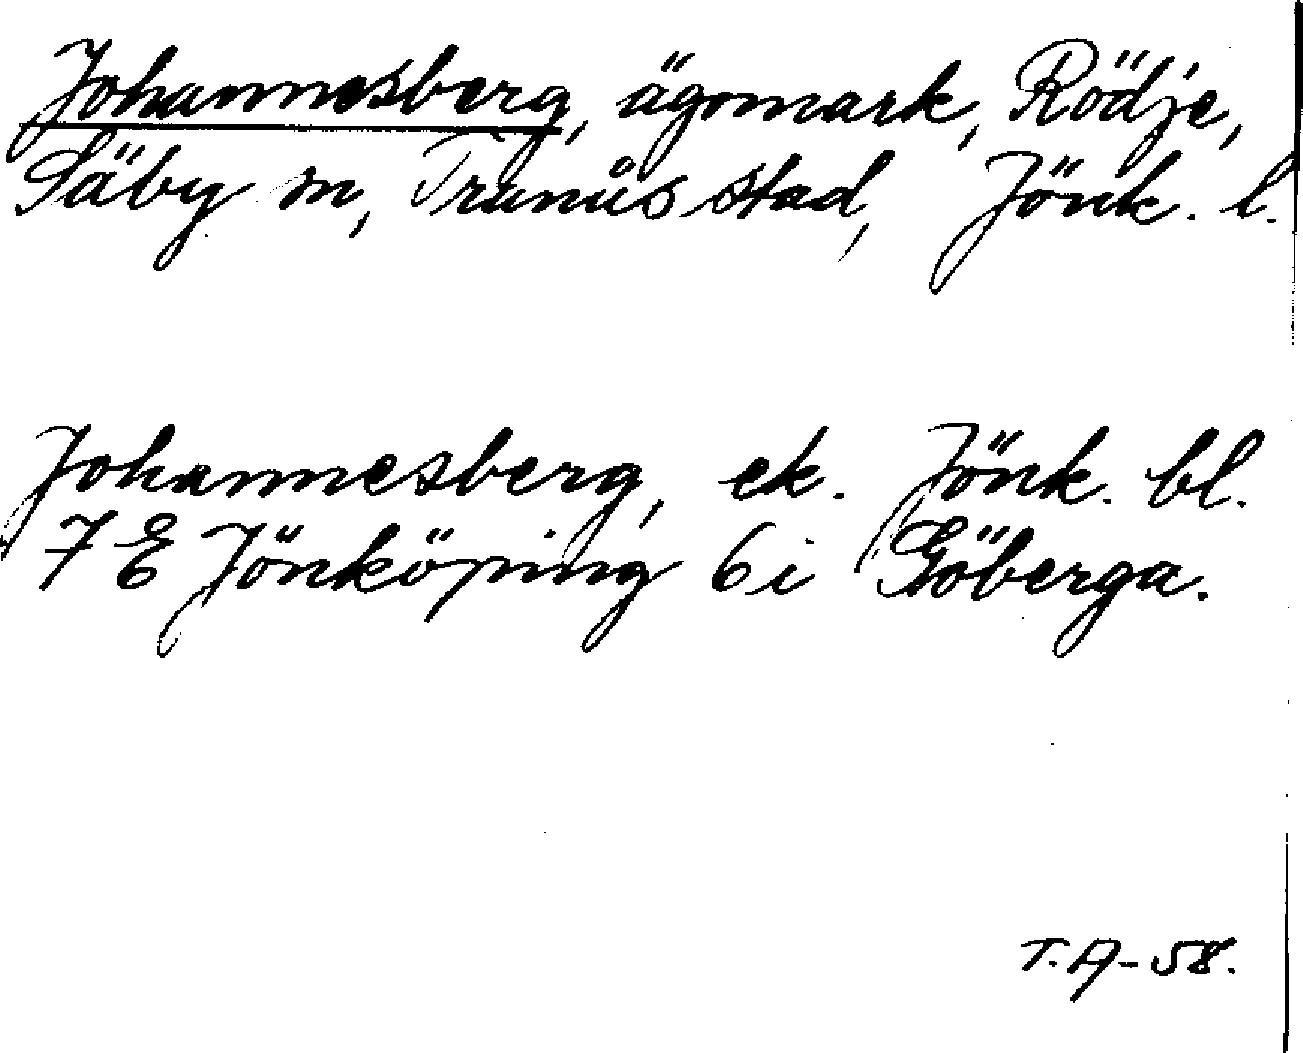 Johannesberg, ägomark, Rödje,
Säby sn, Tranås stad, Jönk. l.
Johannesberg, ek. Jönk. bl.
7 E Jönköping 6 i Göberga.
T.A-58.